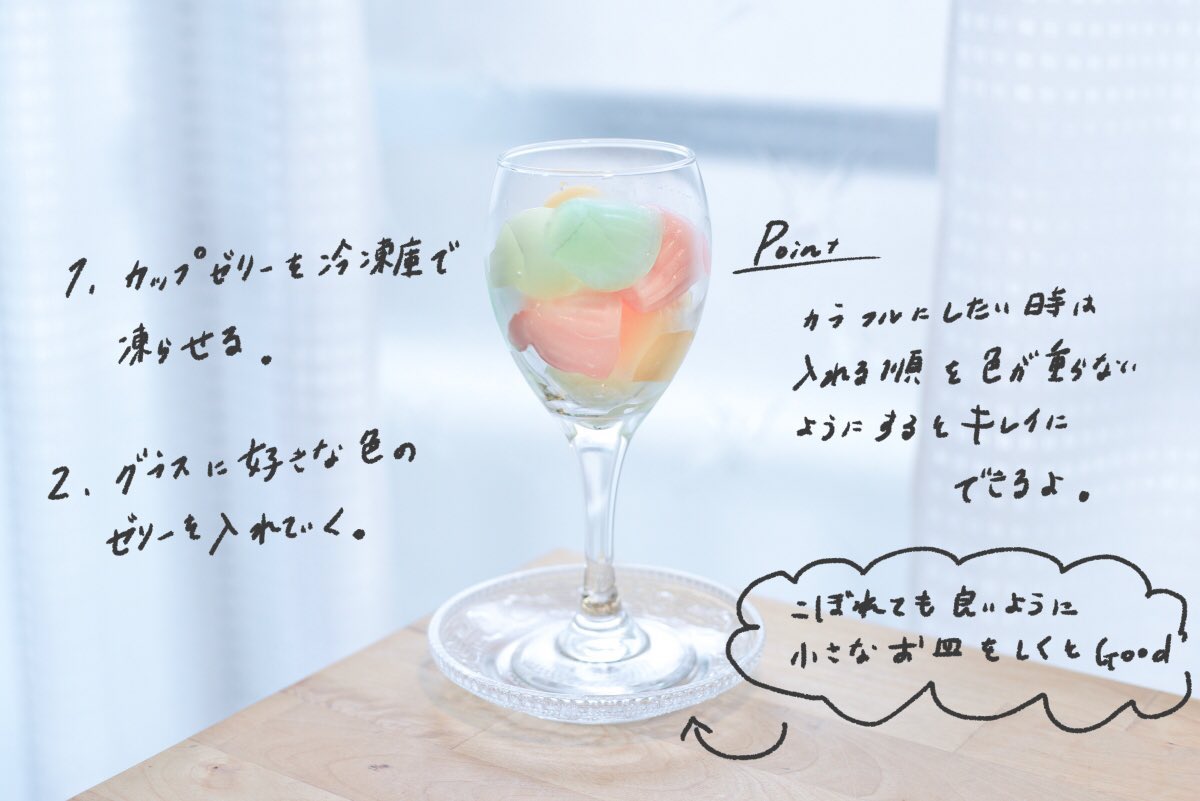 1. カップゼリーを冷凍庫で
凍らせる。
2. グラスに好きな色の
ゼリーを入れていく。
Point
カラフルにしたい時は
入れる順を色が重らない
ようにするとキレイに
できるよ。
こぼれても良いように
小さなお皿をしくとGood